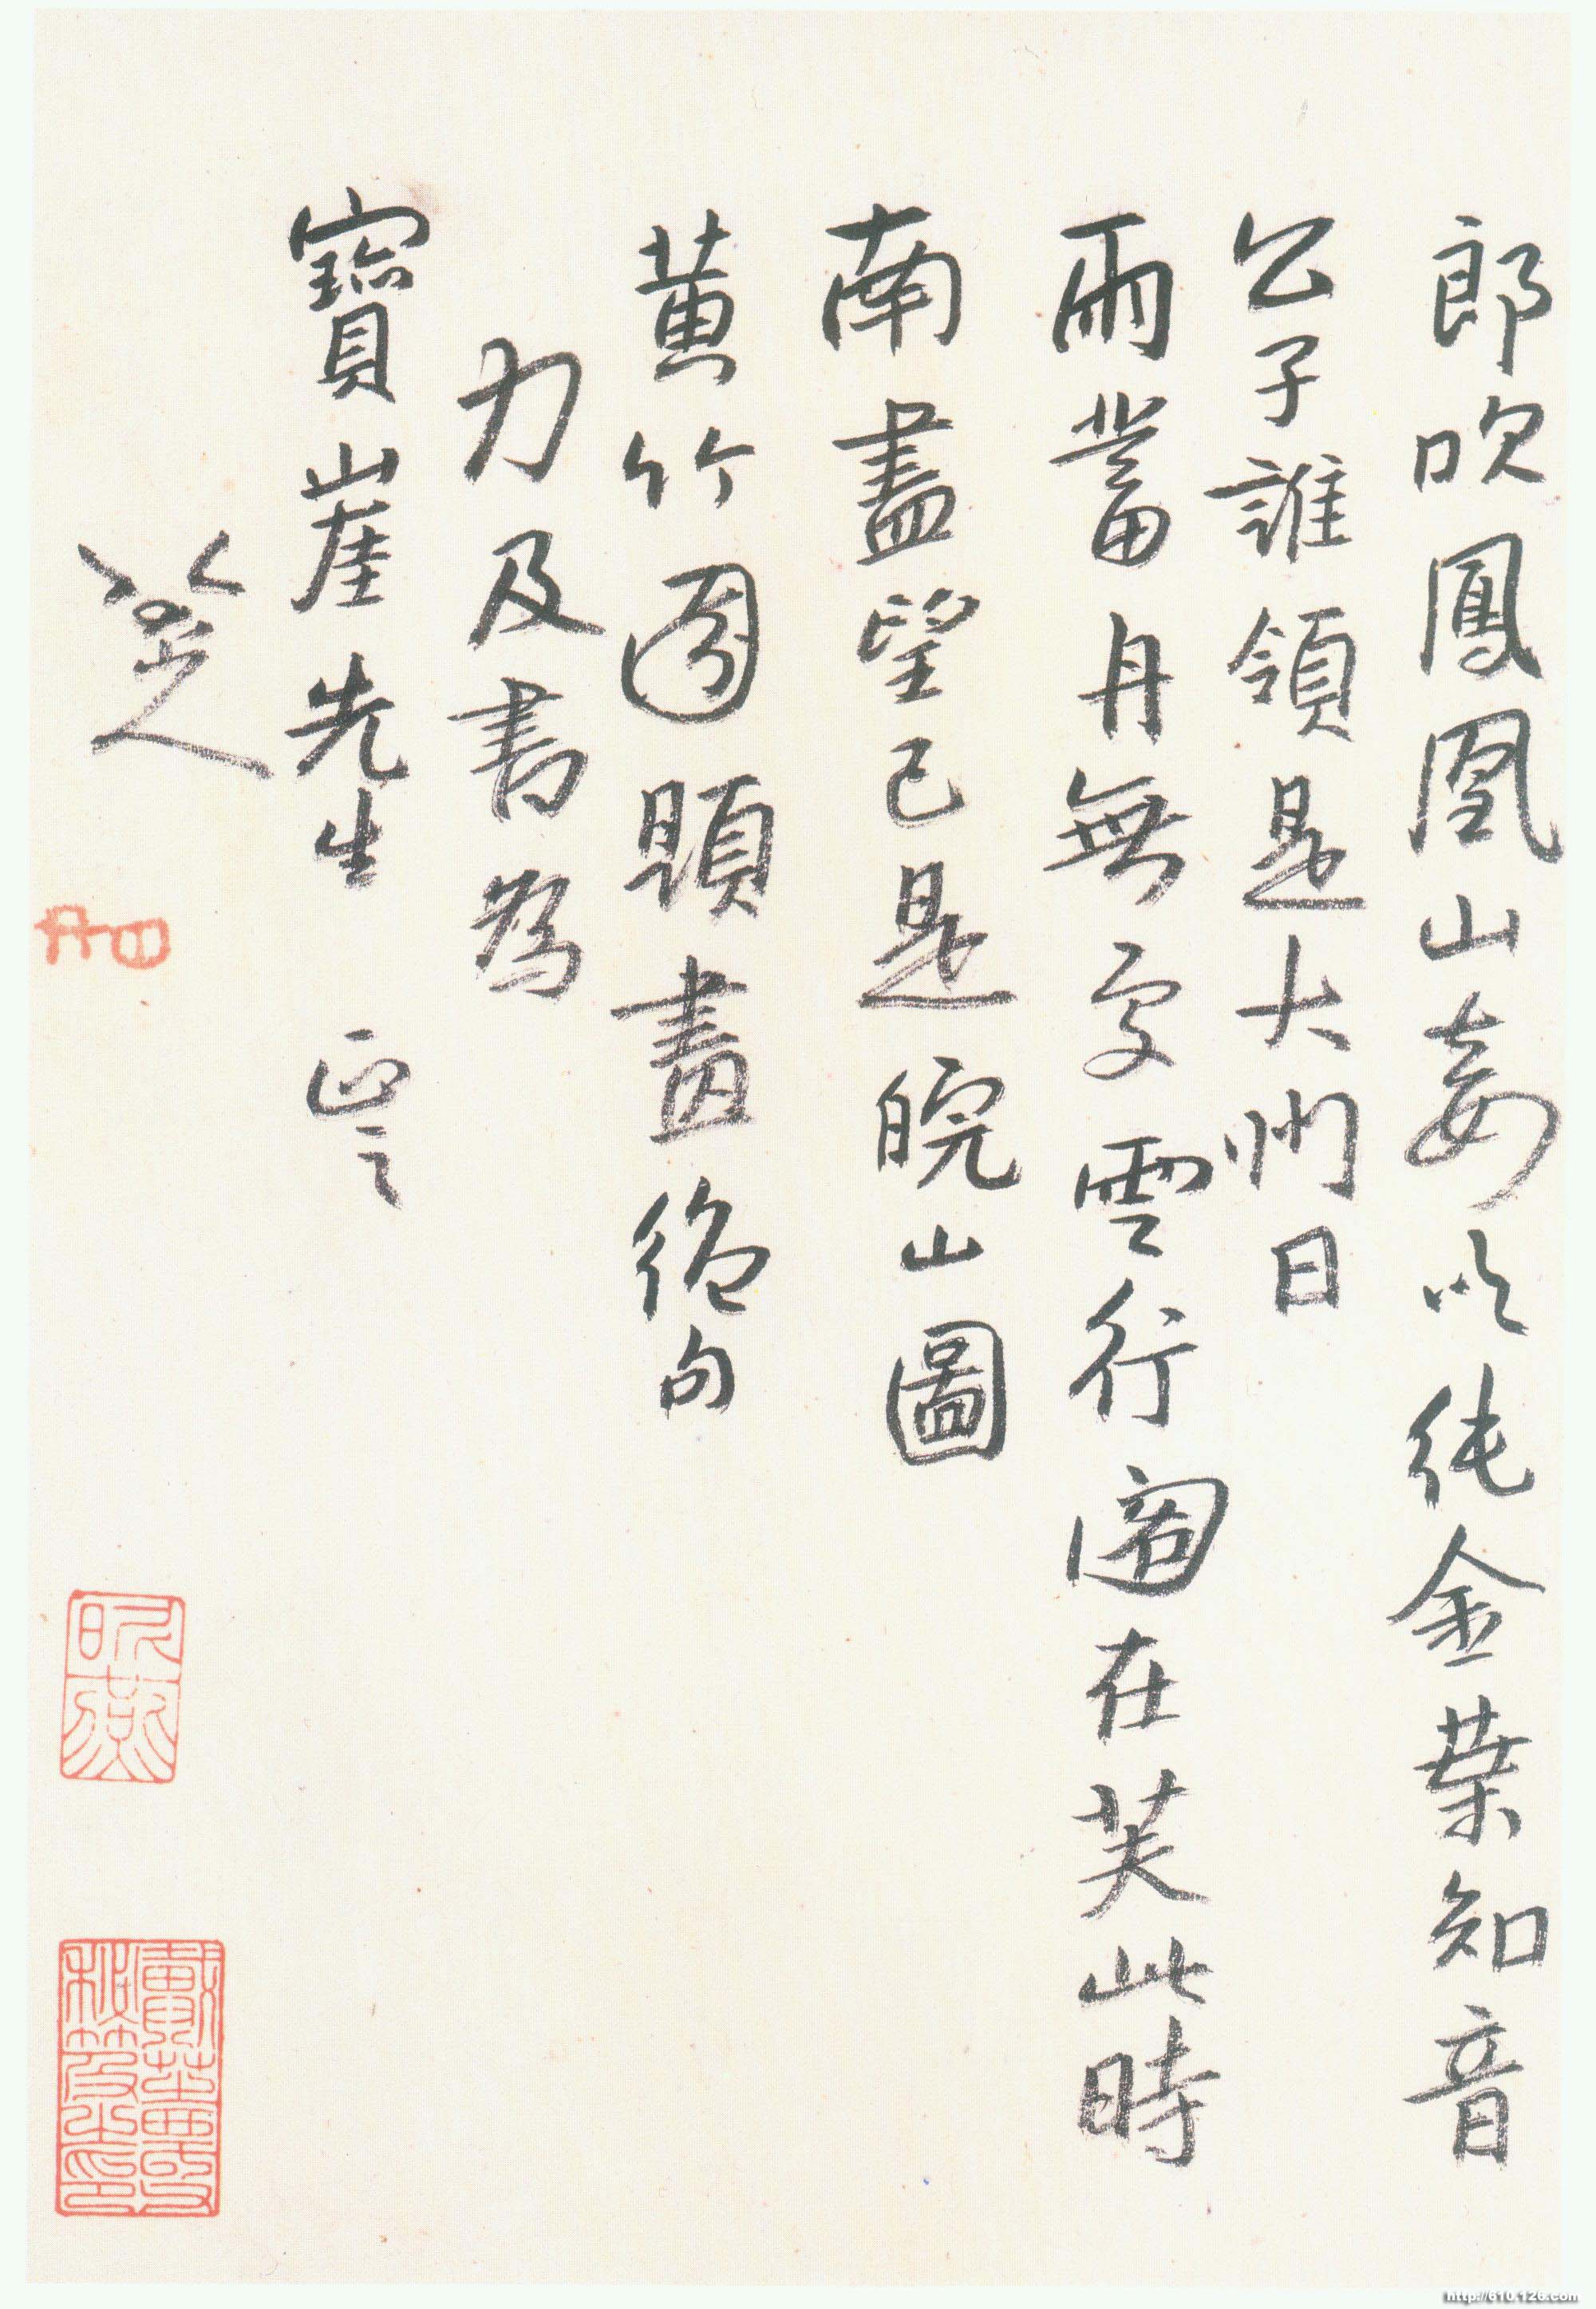 郎吹鳳凰山妾以純金葉知音
公子誰領是大州日
雨蓄舟無處雲行閣在芙此時
南盡望已是皖山圖
黃竹園題畫絕句
力及書為
寶崖先生 正之
八大山人
http://610.126.com